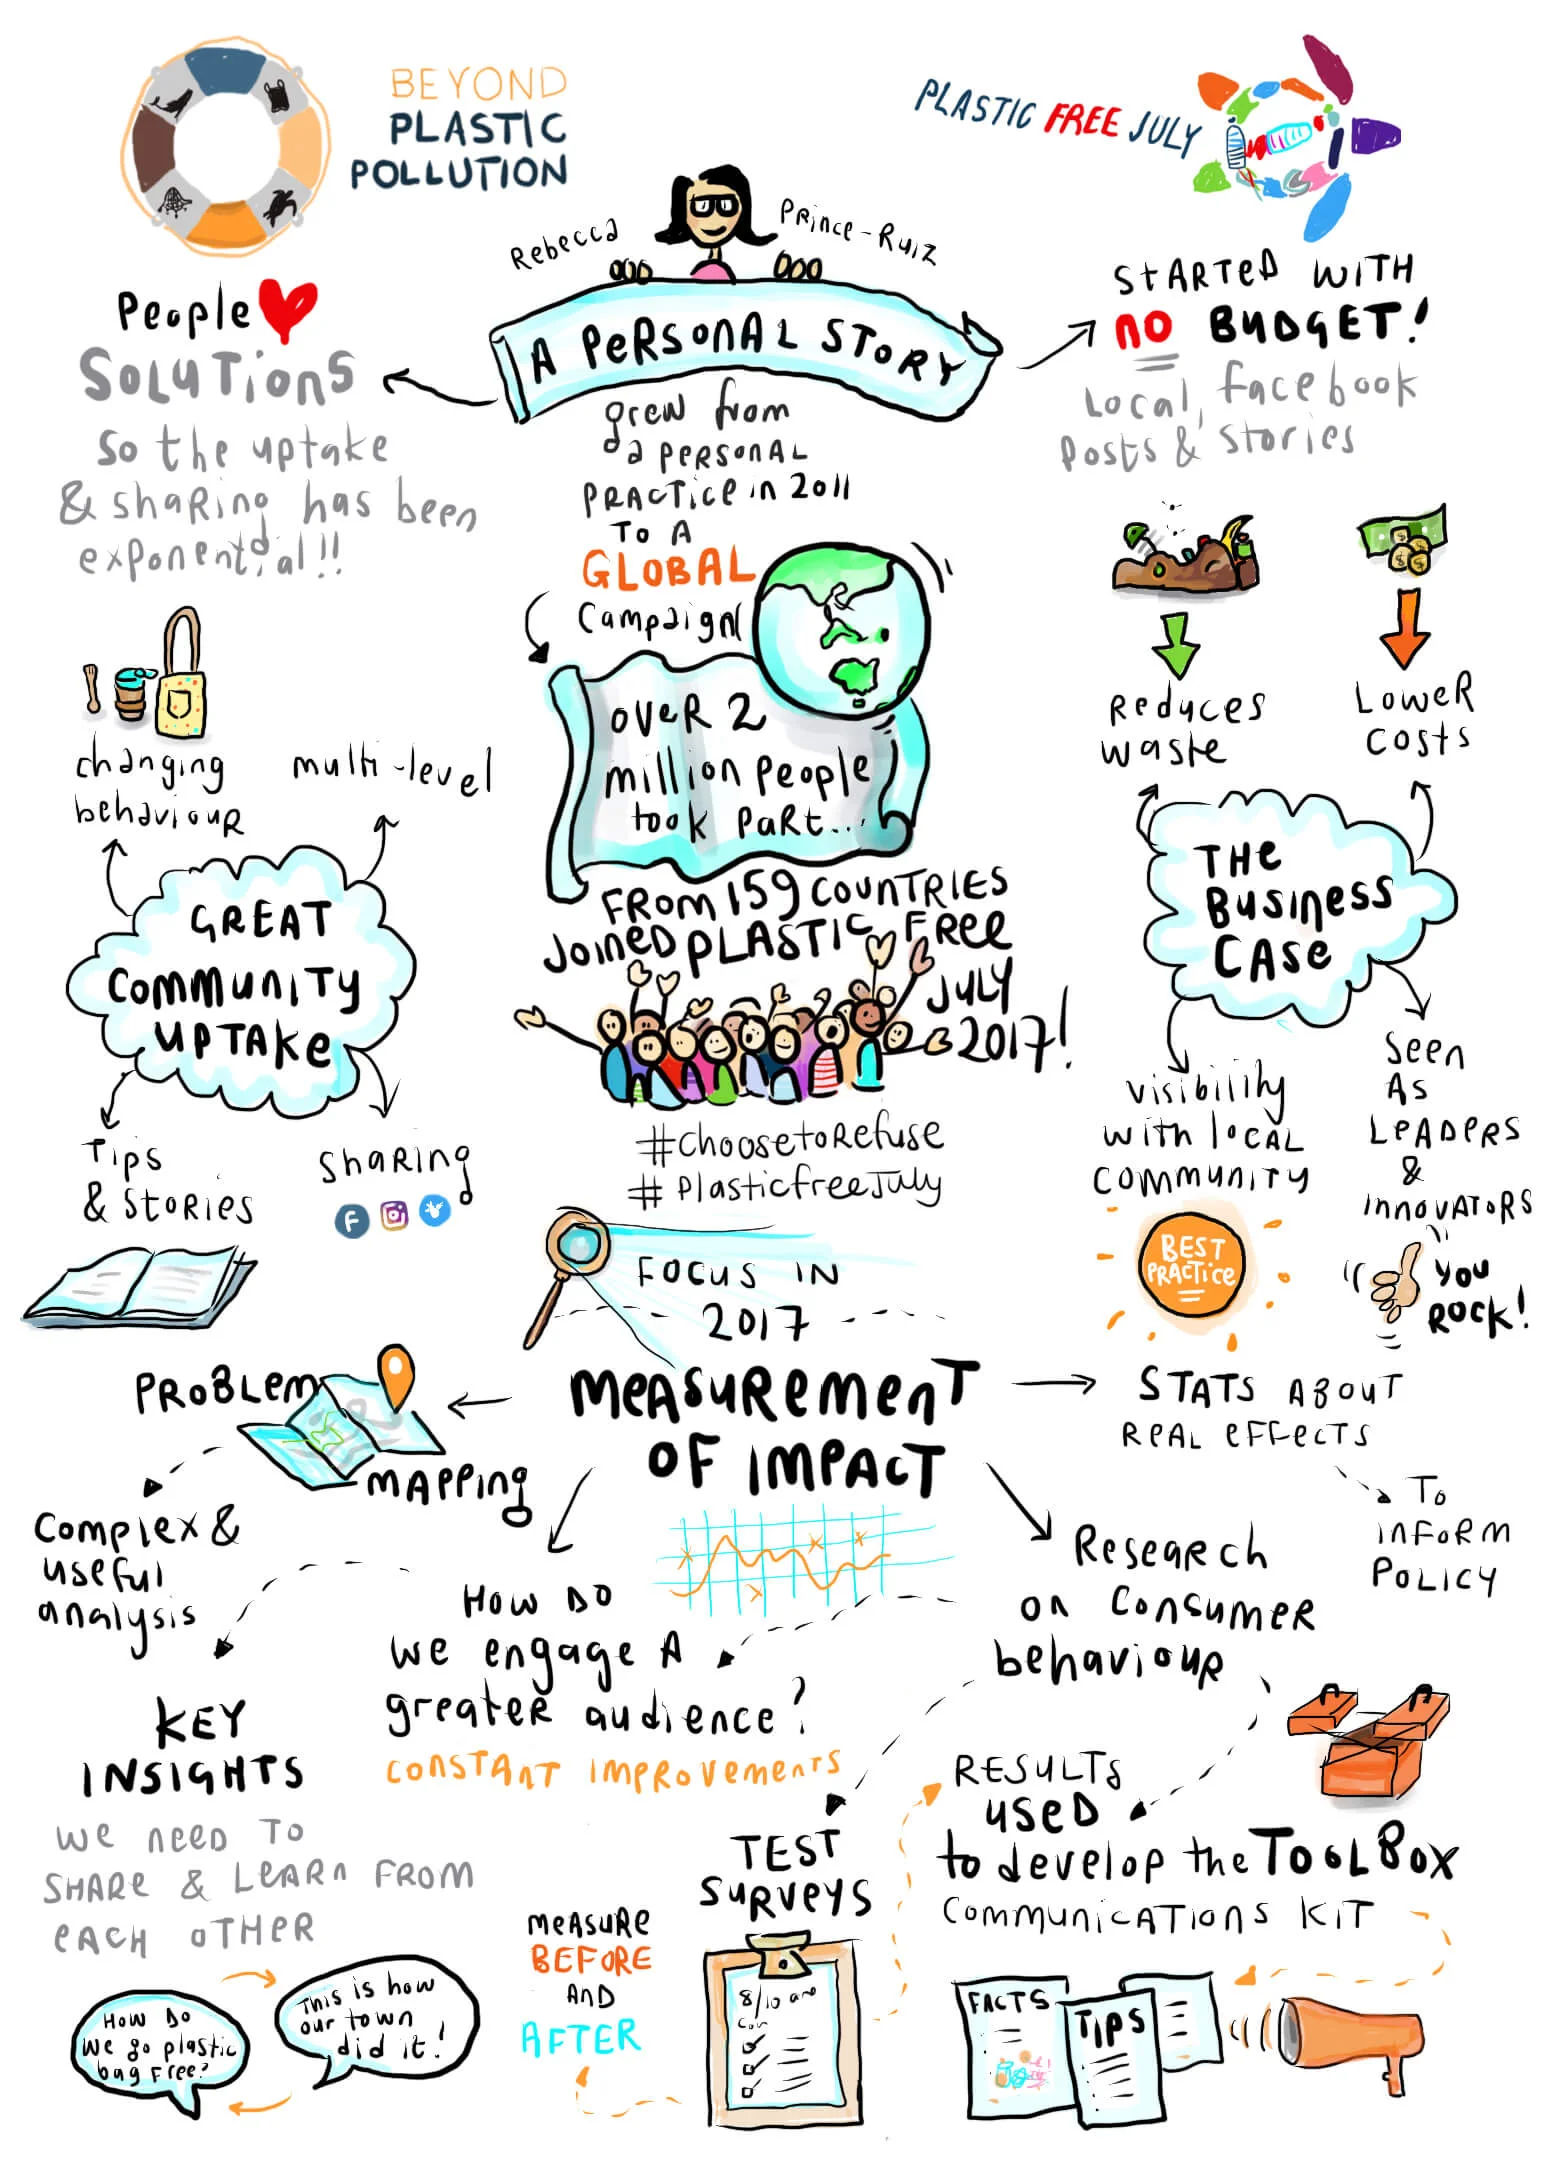 BEYOND
PLASTIC
POLLUTION
PLASTIC FREE JULY
Rebecca
Prince-Ruiz
A PERSONAL STORY
People
SOLUTIONS
so the uptake
& sharing has been
exponential!!
STARTED WITH
NO BUDGET!
Local, facebook
posts & stories
grew from
a personal
practice in 2011
TO A
GLOBAL
campaign
over 2
million people
took part...
FROM 159 COUNTRIES
JOINED PLASTIC FREE
JULY
2017!
#choosetorefuse
#PlasticfreeJuly
changing
behaviour
multi-level
GREAT
COMMUNITY
UPTAKE
Tips
& Stories
sharing
F
Reduces
waste
Lower
costs
THE
BUSINESS
CASE
visibility
with local
community
Seen
As
Leaders
&
innovators
BEST
PRACTICE
YOU
ROCK!
FOCUS IN
2017
MEASUREMENT
OF IMPACT
PROBLEM
MAPPING
Complex &
useful
analysis
STATS ABOUT
REAL EFFECTS
To
inform
POLICY
HOW DO
we engage A
greater audience?
CONSTANT IMPROVEMENTS
Research
on consumer
behaviour
KEY
INSIGHTS
WE NEED TO
SHARE & LEARN FROM
EACH OTHER
How Do
we go plastic
bag free?
This is how
our town
did it!
TEST
SURVEYS
MEASURE
BEFORE
AND
AFTER
8/10 are
RESULTS
USED
to develop the TOOLBOX
COMMUNICATIONS KIT
FACTS
TIPS